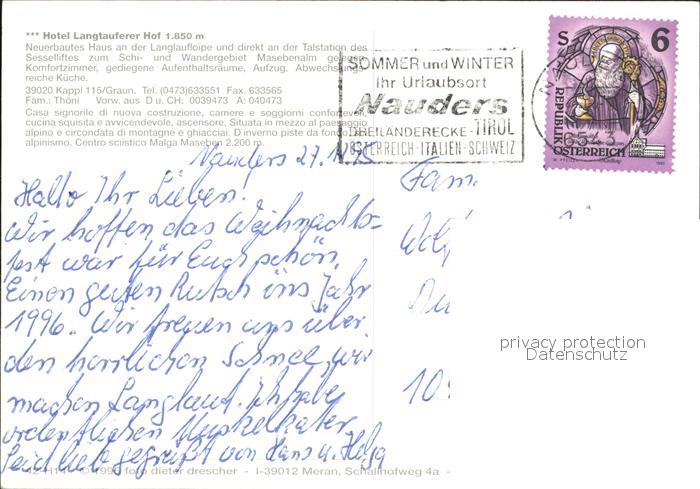 *** Hotel Langtauferer Hof 1.850 m
Neuerbautes Haus an der Langlaufloipe und direkt an der Talstation des
Sesselliftes zum Schi- und Wandergebiet Masebenalm
Komfortzimmer, gediegene Aufenthaltsräume, Aufzug.
reiche Küche.
39020 Kappl 115/Graun. Tel. (0473)633551 Fax. 633565
Fam.: Thöni Vorw. aus D u. CH: 0039473 A: 040473
Casa signorile di nuova costruzione, camere e soggiorni
cucina squisita e avvicendevole, ascensore. Situata in mezzo al paesaggio
alpino e circondata di montagne e ghiacciai. D inverno piste da
alpinismo. Centro sciistico Malga Maseben 2.200 m.
SOMMER und WINTER
Ihr Urlaubsort
Nauders
DREILÄNDERECKE - TIROL
ÖSTERREICH - ITALIEN - SCHWEIZ
6543
S 6
REPUBLIK
ÖSTERREICH
Nauders 27.
Hallo Ihr Lieben!
Wir hoffen das Weihnachts-
fest war für Euch schön.
Einen guten Rutsch ins Jahr
1996. Wir freuen uns über
den herrlichen Schnee, wir
machen Langlauf. Ich habe
ordentlichen Muskelkater.
Seid lieb gegrüßt von Hans u. Helga
Fam.
privacy protection
Datenschutz
foto dieter drescher - I-39012 Meran, Schallhofweg 4a -